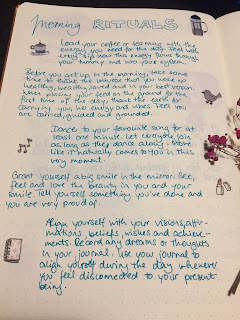 Morning RITUALS
Load your coffee or tea mug with the
energy you need for the day. Feel with
every sip how this energy flows through
your tummy and into your system.
Before you get up in the morning, take some
time to think the universe that you woke up
healthy, healthy loved and in your best version
When placing your feet on the ground for the
first time of the day, thank the earth for
carrying you, her energy and vibes. Feel you
are carried, guided and grounded.
Dance to your favourite song for at
least one minute. Let everybody join
as long as they dance along. Move
like it naturally comes to you in this
very moment.
Grant yourself a big smile in the mirror. See,
feel and love the beauty in you and your
smile. Tell yourself something you've done and
you are very proud of.
Align yourself with your visions, affir-
mations, beliefs, wishes and achieve-
ments. Record any dreams or thoughts
in your journal. Use your journal to
align yourself during the day whenever
you feel disconnected to your present
being.